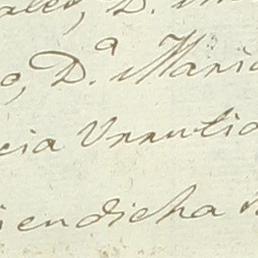 ales, D.
o, D.ª Maria
cia Urrutia
iendicha